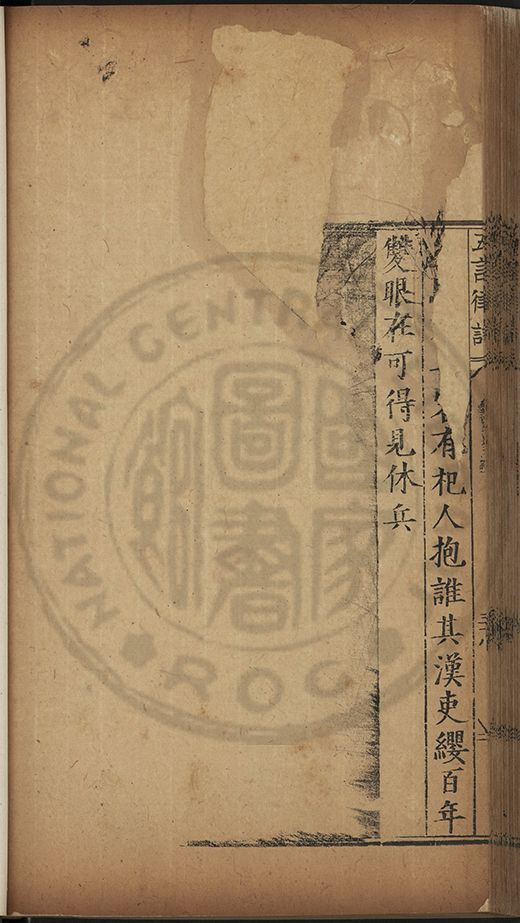 五言律詩
有杞人抱誰其漢吏纓百年
雙眼在可得見休兵
NATIONAL CENTRA
ROC
國家
圖書
館